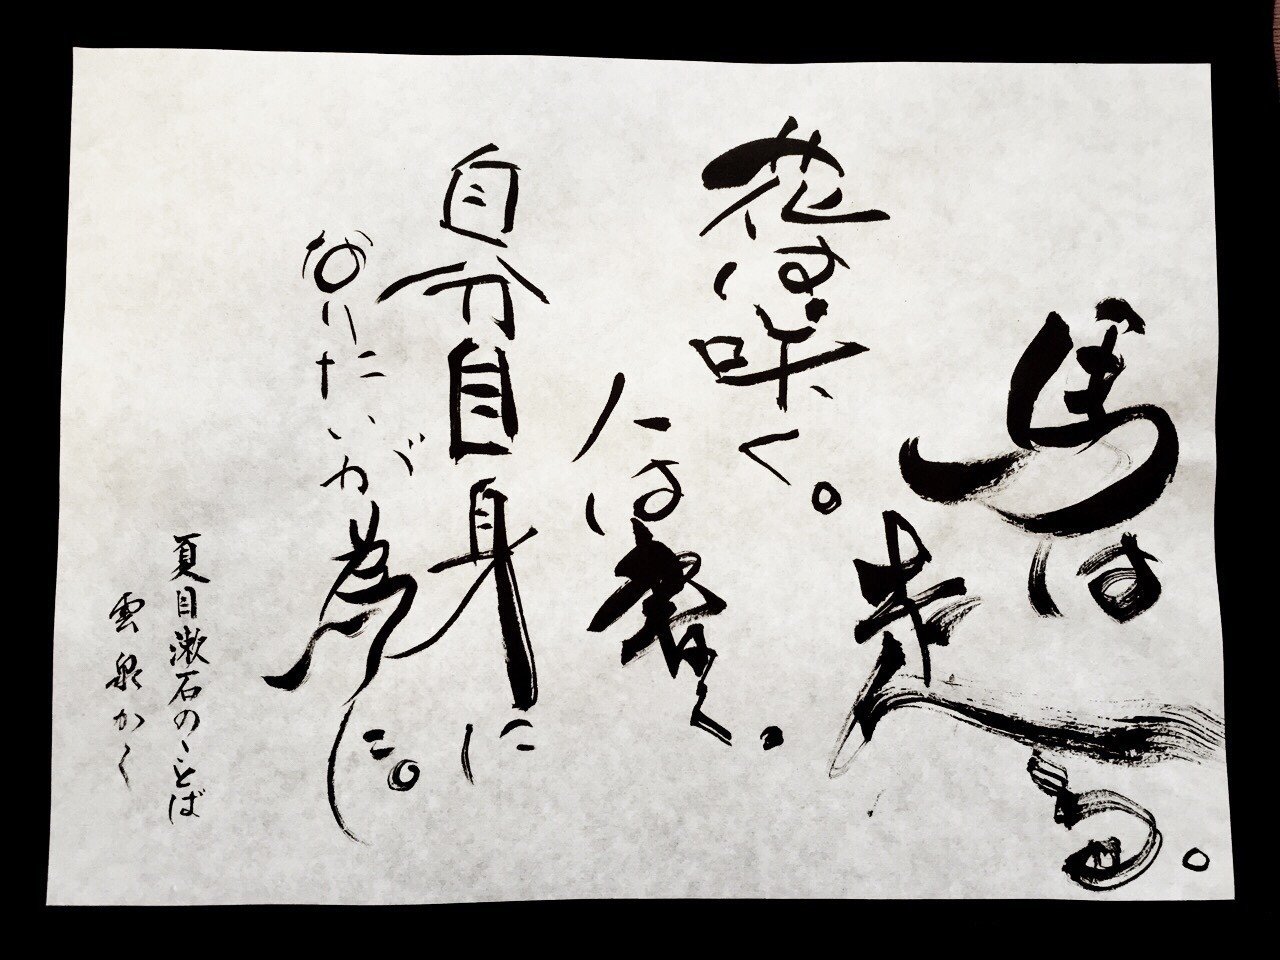 馬は
走る。
花は咲く。
人は書く。
自分自身に
なりたいが為に。
夏目漱石のことば
雲泉かく